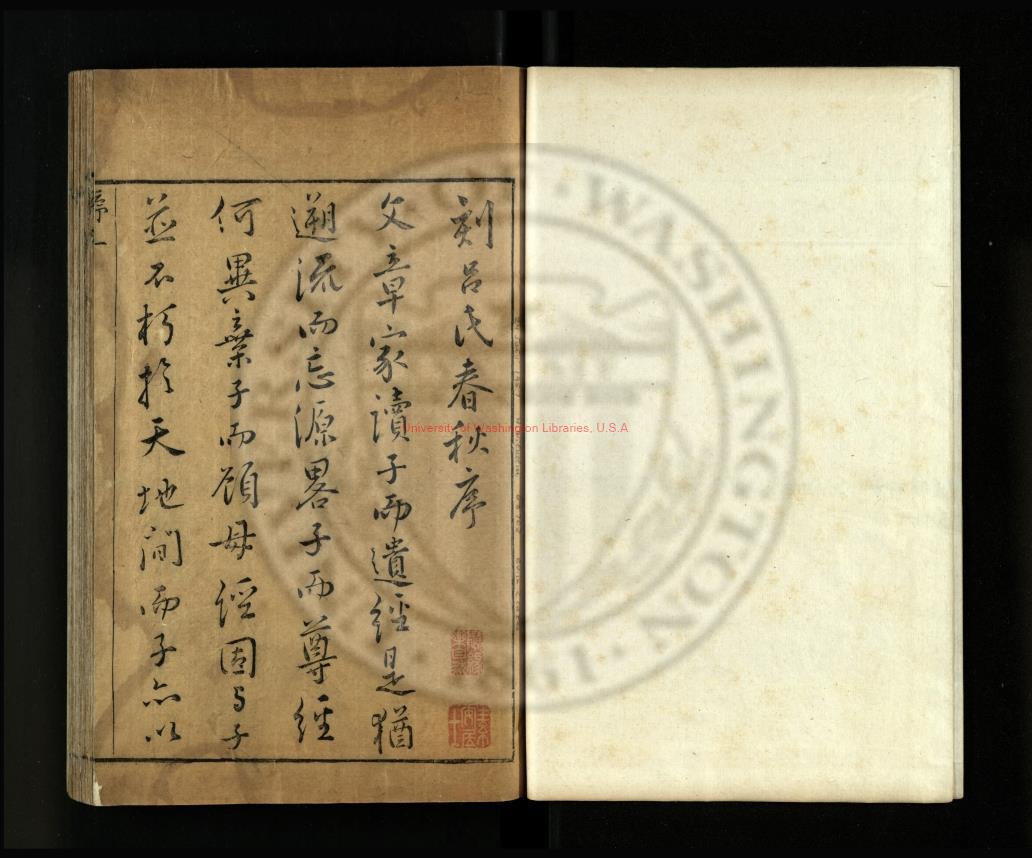 刻呂氏春秋序
文章家讀子而遺經是猶
遡流而忘源畧子而尊經
何異棄子而顧母經固与子
並不朽於天地間而子亦以
序一
University of Washington Libraries, U.S.A
WASHINGTON
1861